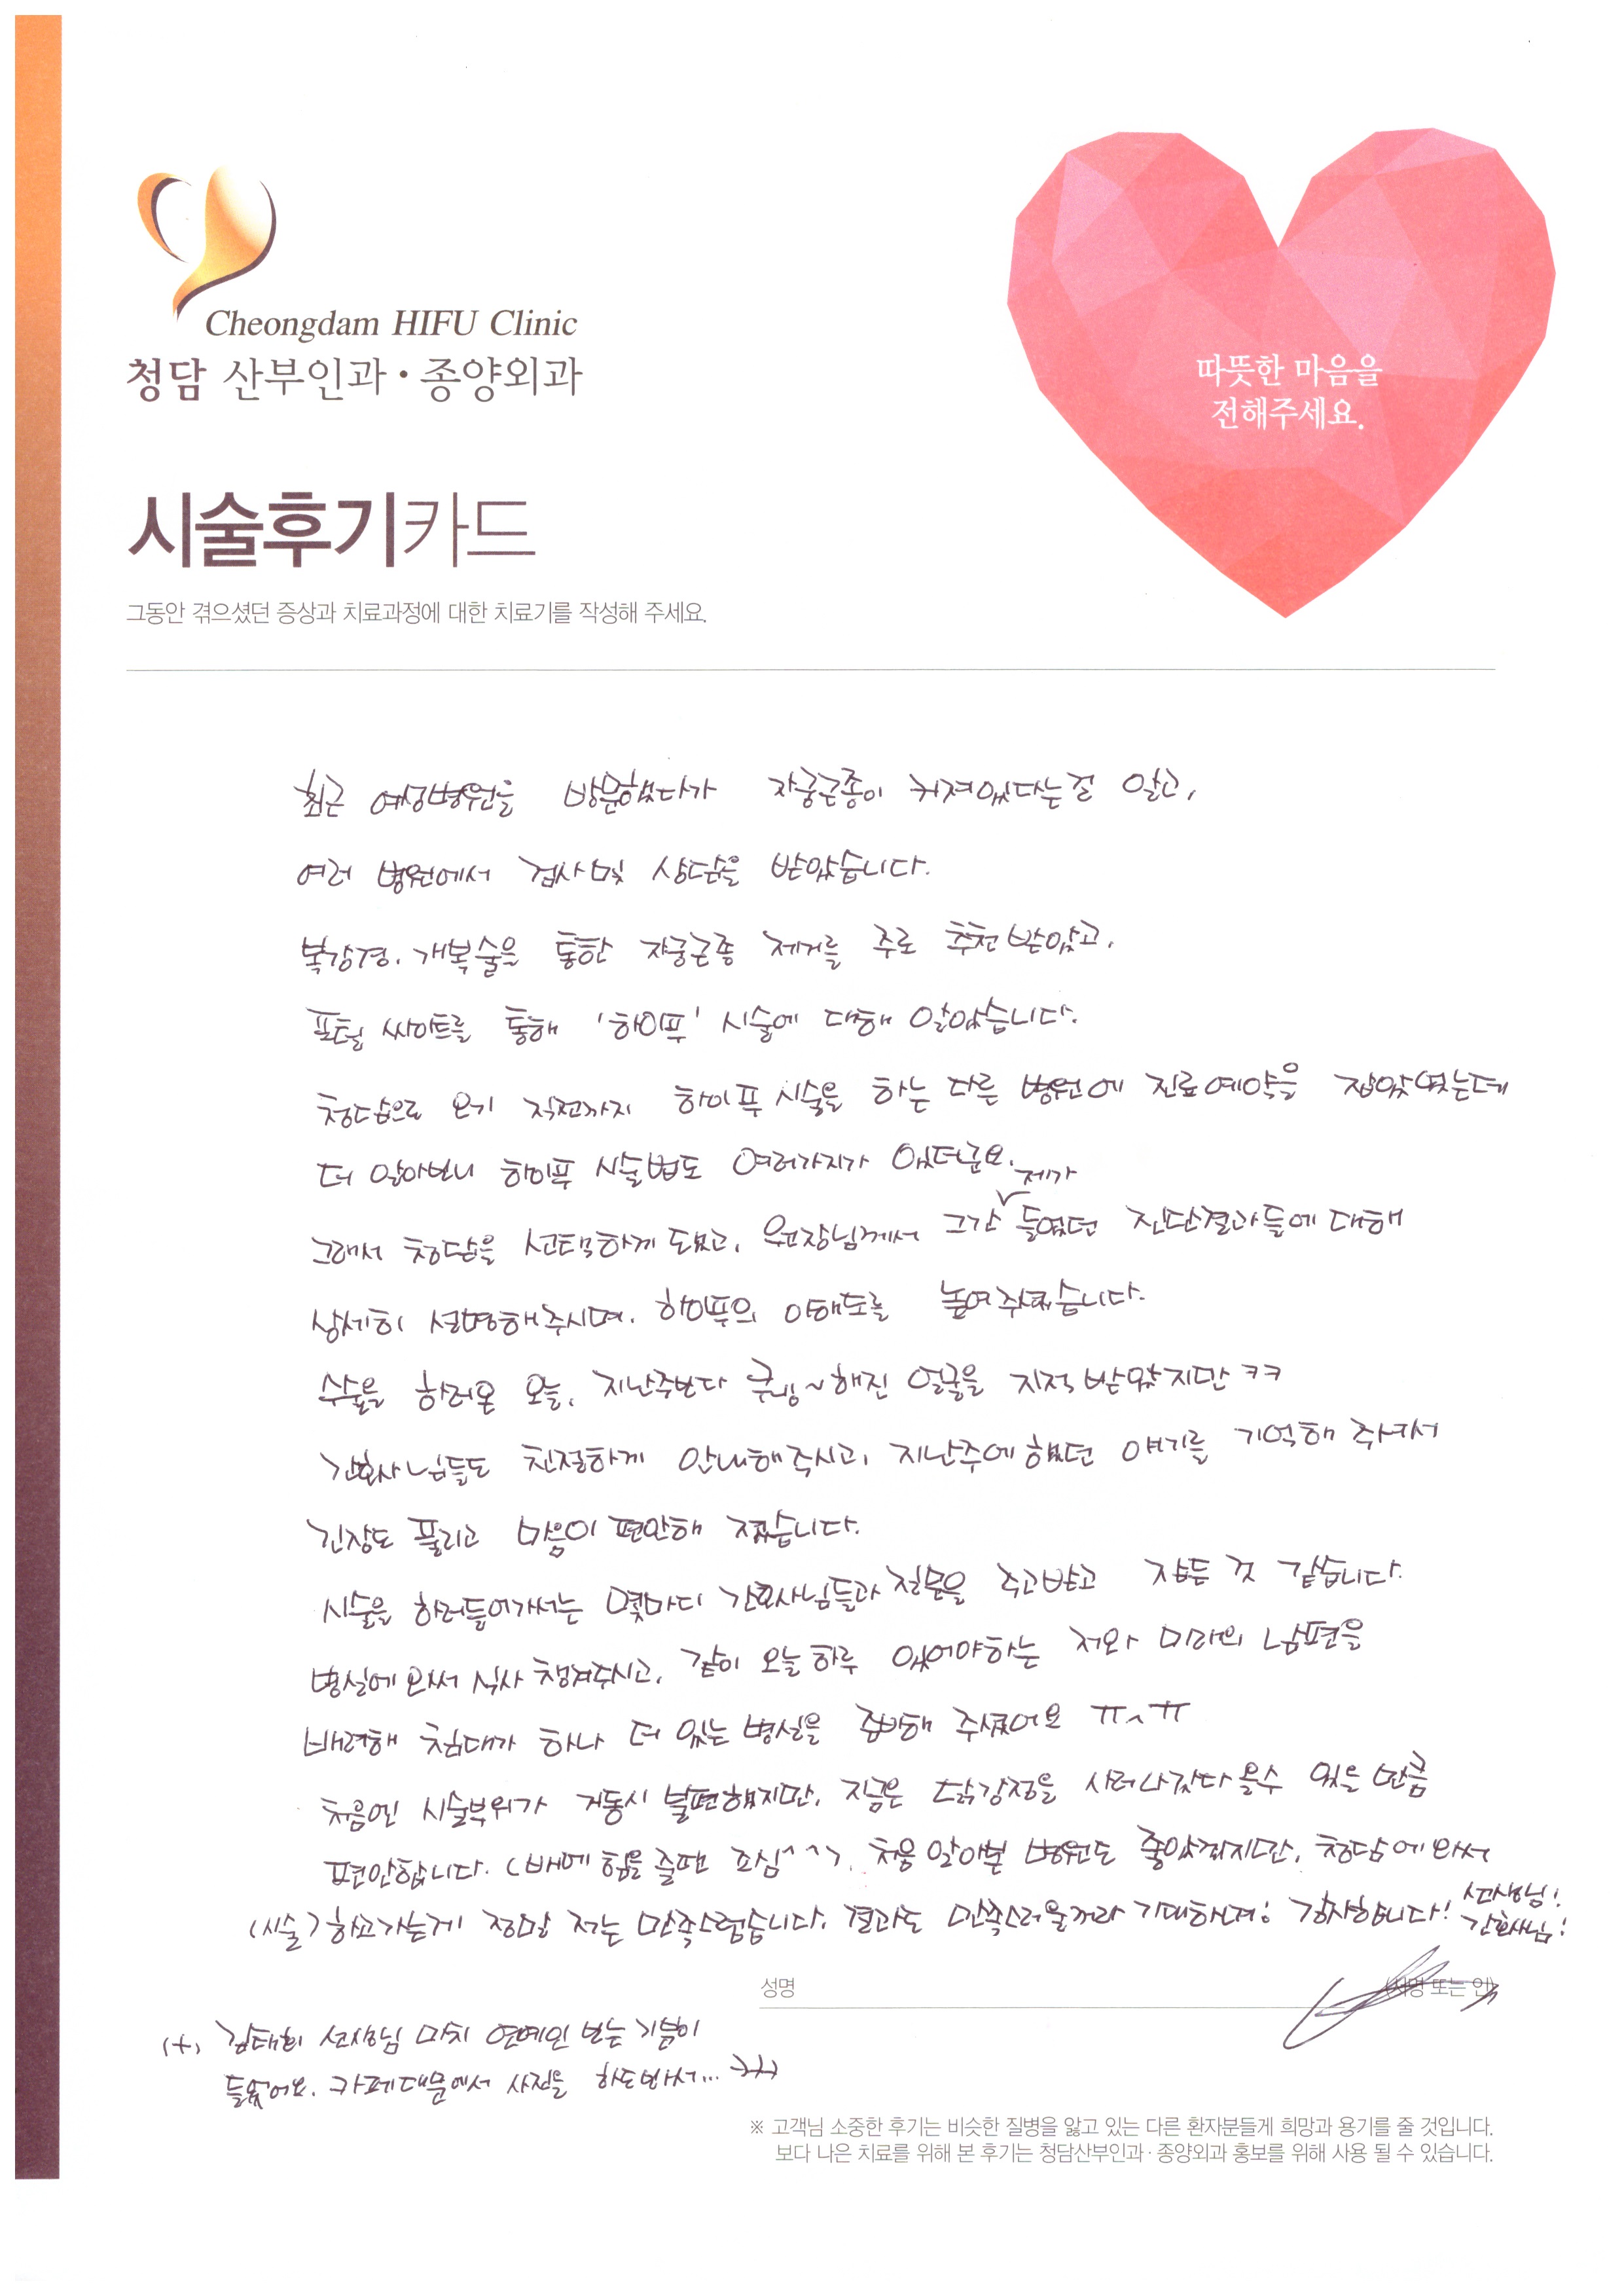 Cheongdam HIFU Clinic
청담 산부인과·종양외과
따뜻한 마음을
전해주세요.
시술후기카드
그동안 겪으셨던 증상과 치료과정에 대한 치료기를 작성해 주세요.
최근 여성병원을 방문했다가 자궁근종이 커져있다는걸 알고,
여러 병원에서 검사 및 상담을 받았습니다.
복강경, 개복술을 통한 자궁근종 제거를 주로 추천 받았고,
포털 싸이트를 통해 '하이푸' 시술에 대해 알았습니다.
청담으로 오기 직전까지 하이푸 시술을 하는 다른 병원에 진료예약을 잡았었는데
더 알아보니 하이푸 시술법도 여러가지가 있더군요.
그래서 청담을 선택하게 됐고, 원장님께서 그간 제가 들었던 진단결과들에 대해
상세히 설명해주시며, 하이푸의 이해도를 높여주셨습니다.
수술을 하러온 오늘, 지난주보다 퀭~해진 얼굴을 지적 받았지만 ㅋㅋ
간호사님들도 친절하게 안내해주시고, 지난주에 했던 얘기를 기억해 주셔서
긴장도 풀리고 마음이 편안해 졌습니다.
시술을 하러들어가서는 몇마디 간호사님들과 질문을 주고받고 잠든 것 같습니다.
병실에 와서 식사 챙겨주시고, 같이 오늘 하루 있어야하는 저와 미래의 남편을
배려해 침대가 하나 더 있는 병실을 준비해 주셨어요 ㅠ^ㅠ
처음엔 시술부위가 거동시 불편했지만, 지금은 닭강정을 사러나갔다 올수 있을 만큼
편안합니다. (배에 힘을 줄땐 조심^^). 처음 알아본 병원도 좋았겠지만, 청담에 와서
(시술) 하고가는게 정말 저는 만족스럽습니다. 결과도 만족스러울거라 기대하며; 감사합니다! 선생님! 간호사님!
성명 (서명 또는 인)
(+) 김태희 선생님 마치 연예인 보는 기분이
들었어요. 카페대문에서 사진을 하도봐서... ㅋㅋ
※ 고객님 소중한 후기는 비슷한 질병을 앓고 있는 다른 환자분들게 희망과 용기를 줄 것입니다.
보다 나은 치료를 위해 본 후기는 청담산부인과·종양외과 홍보를 위해 사용 될 수 있습니다.